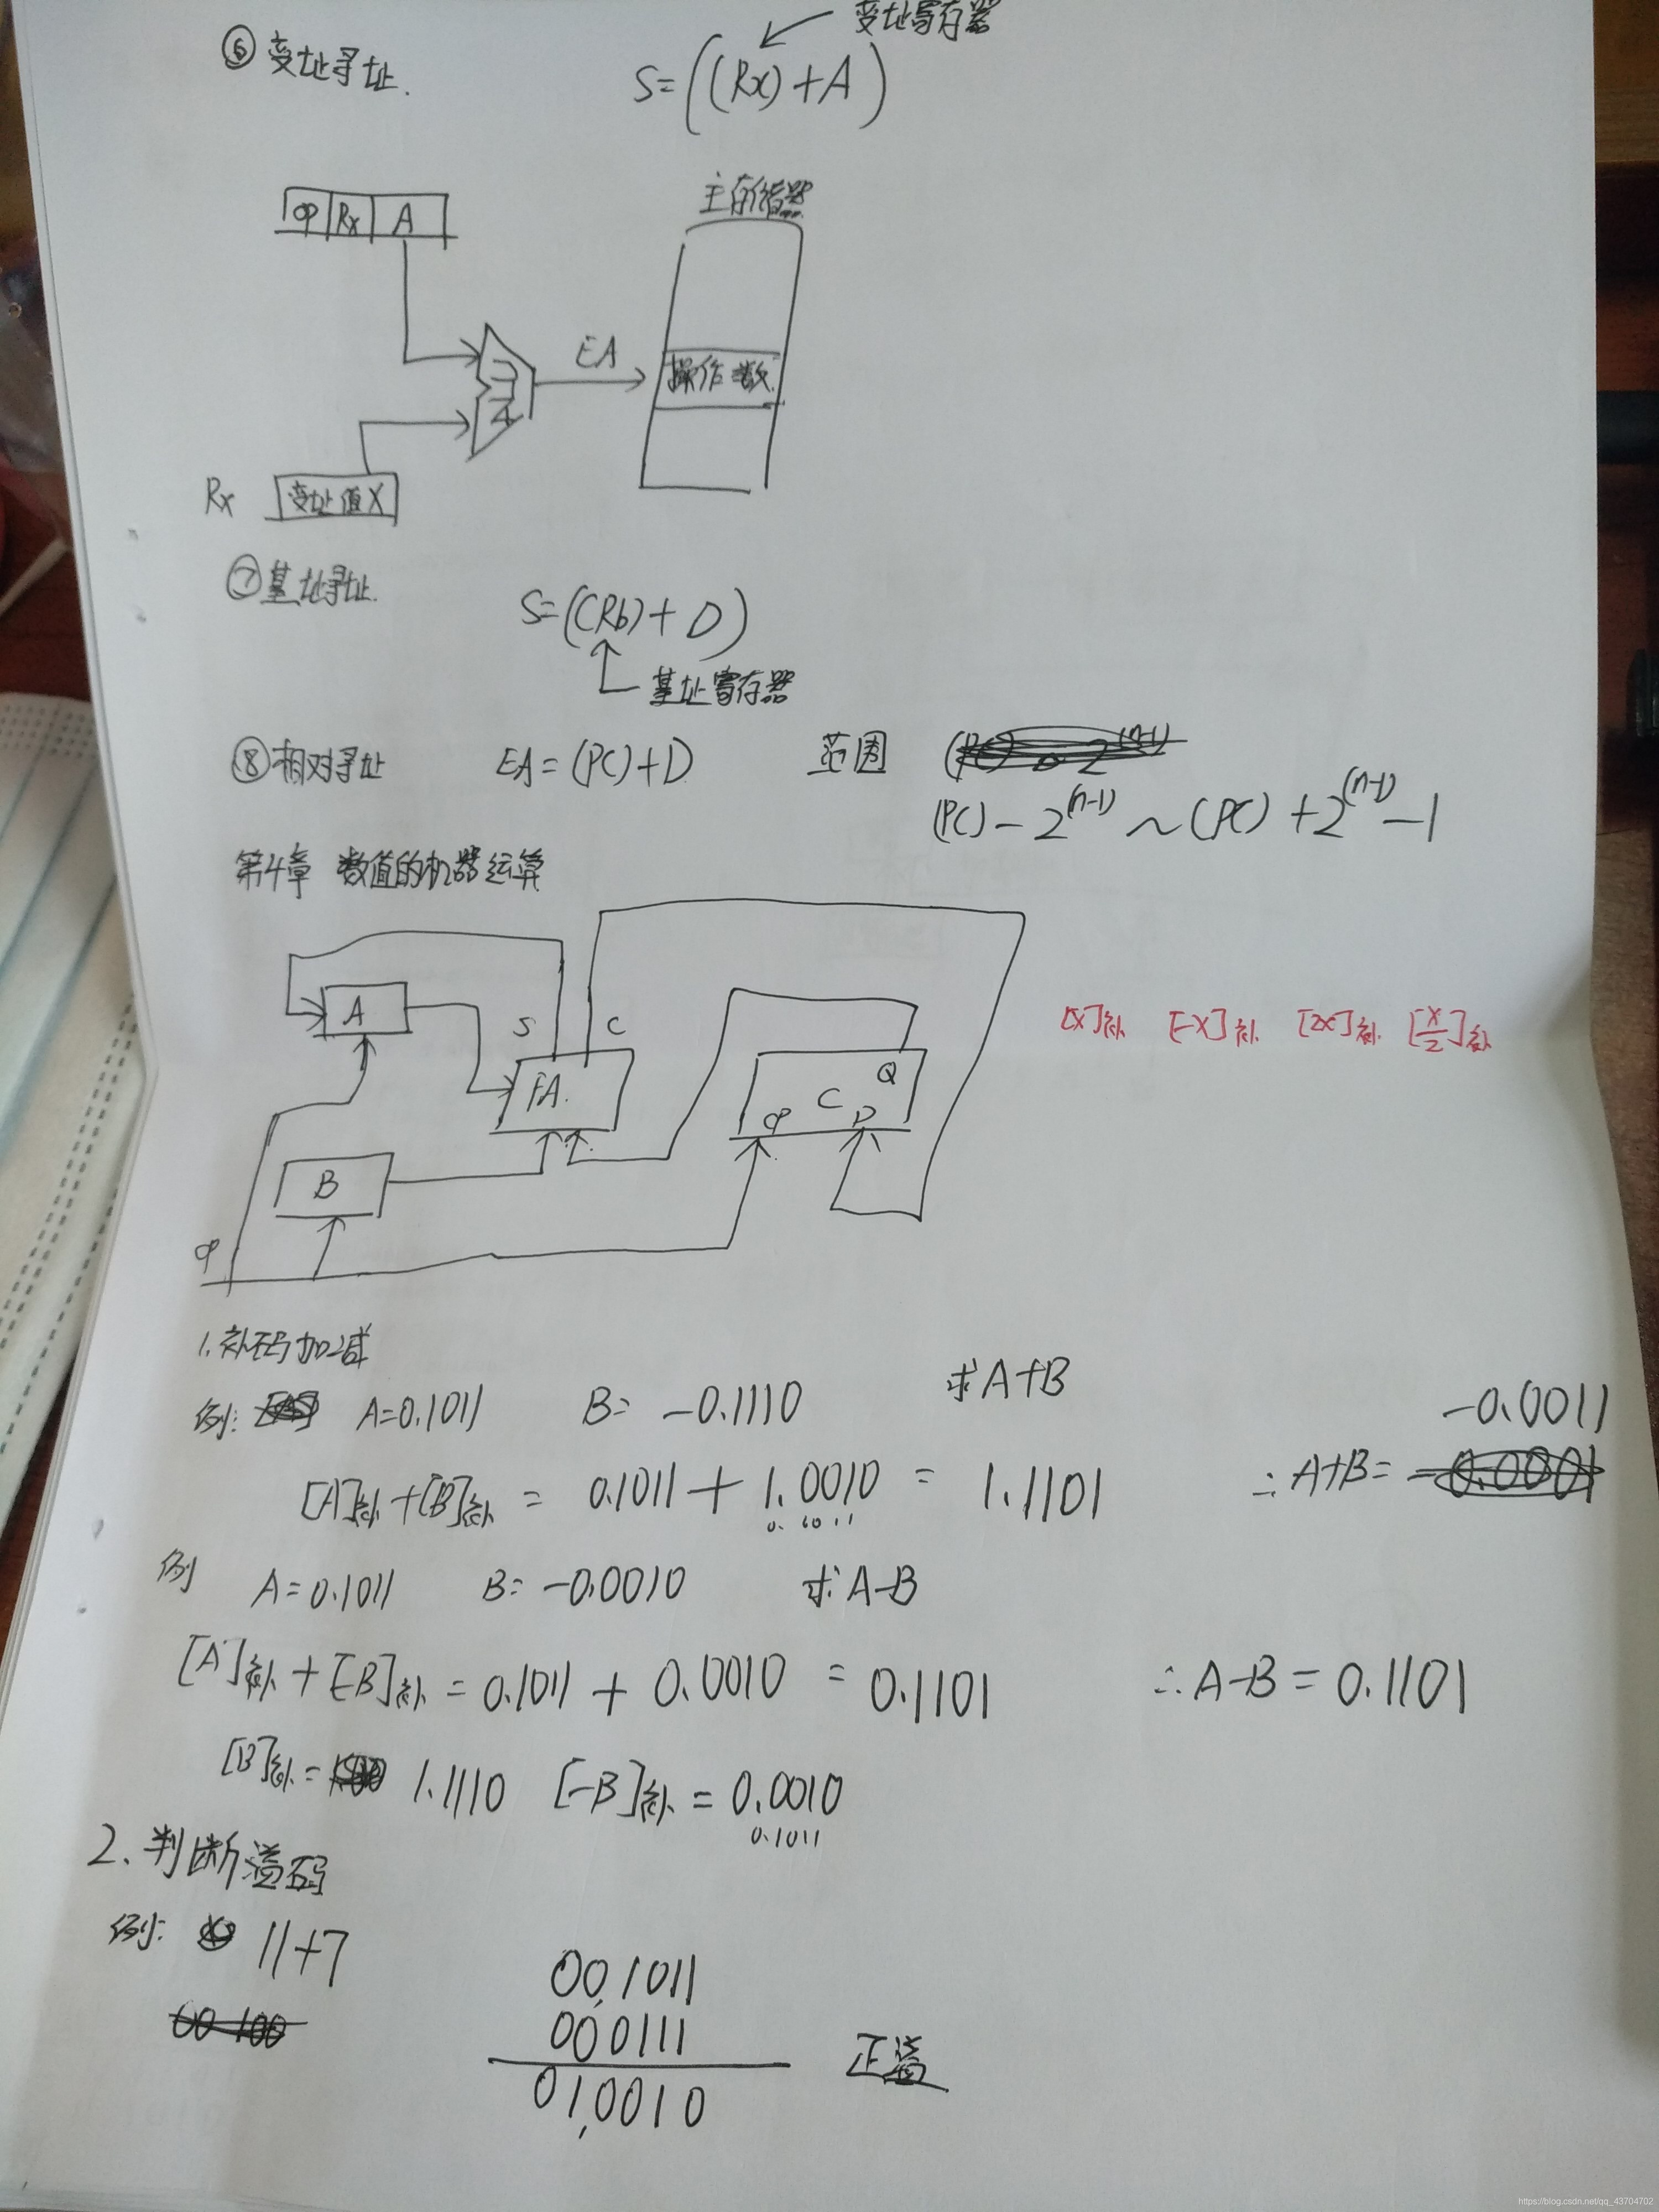 变址寄存器
⑥ 变址寻址. S=((Rx)+A)
主存储器
OP Rx A
EA
操作数
Rx 变址值X
⑦基址寻址. S=((Rb)+D)
基址寄存器
⑧相对寻址 EA=(PC)+D 范围
(PC)-2^(n-1) ~ (PC)+2^(n-1)-1
第4章 数值的机器运算
A S C
[X]补 [-X]补 [2X]补 [X/2]补
FA. Q
C
CP D
B
CP
1.补码加减
例: A=0.1011 B= -0.1110 求A+B
-0.0011
[A]补+[B]补 = 0.1011+1.0010 = 1.1101 ∴A+B=
0.1011
例 A=0.1011 B= -0.0010 求A-B
[A]补+[-B]补=0.1011+0.0010 = 0.1101 ∴A-B=0.1101
[B]补= 1.1110 [-B]补=0.0010
0.1011
2.判断溢码
例: 11+7
00,1011
00 0111 正溢
01,0010
https://blog.csdn.net/qq_43704702